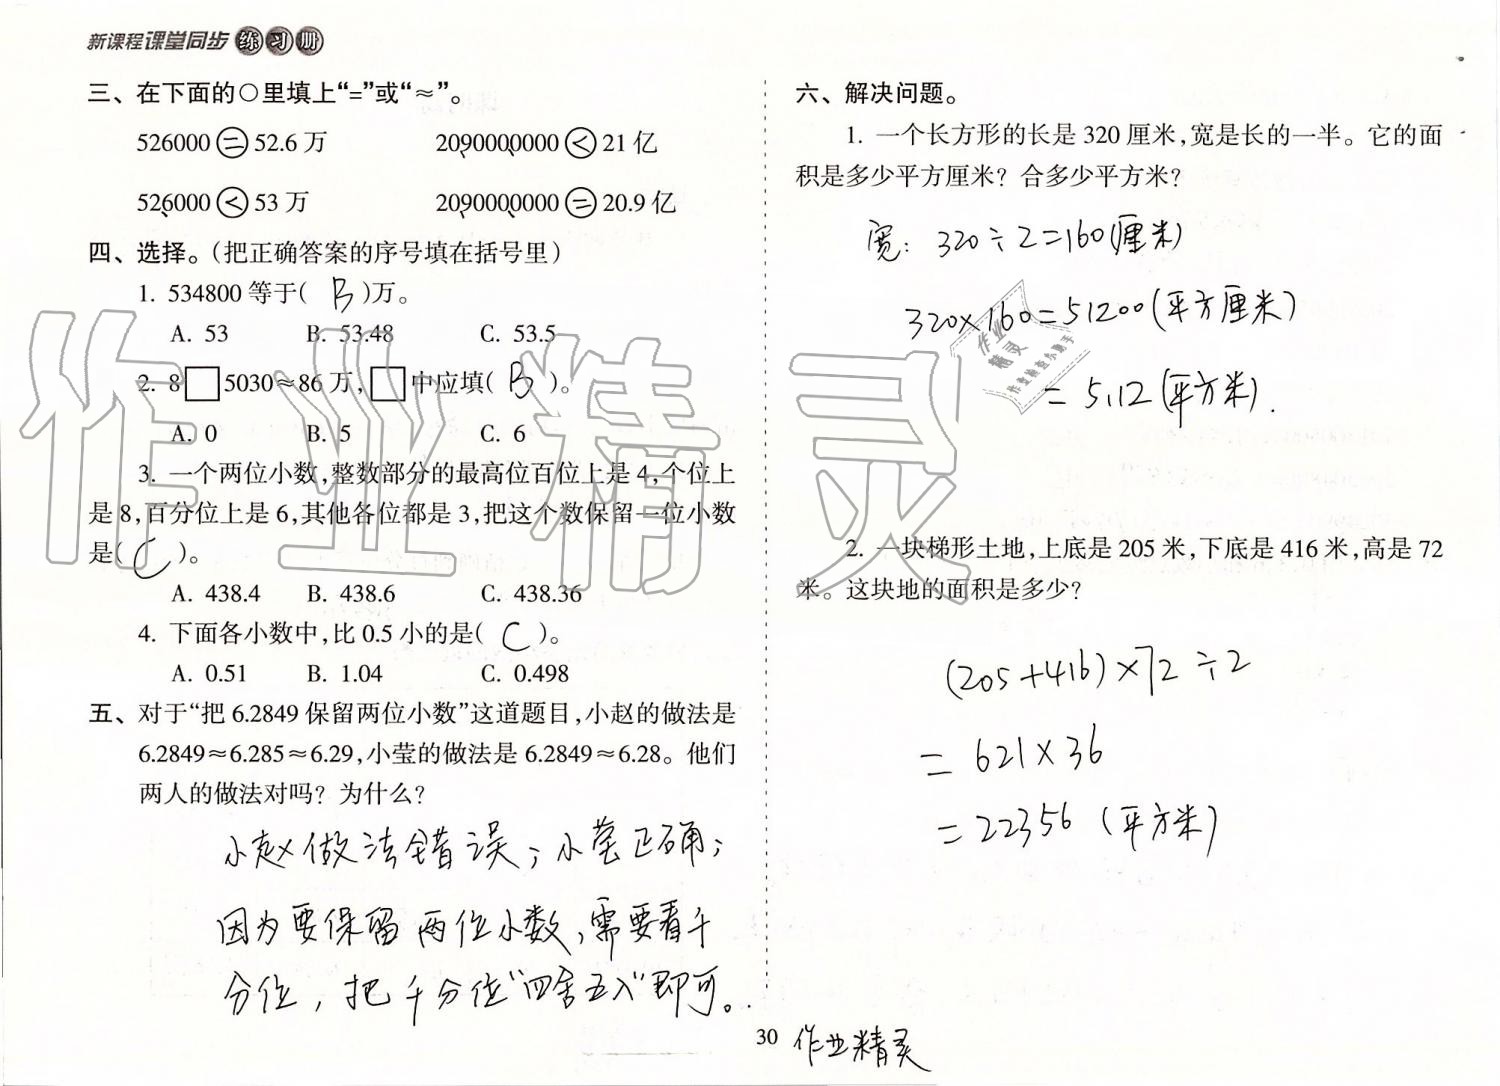 新课程课堂同步练习册
三、在下面的○里填上“=”或“≈”。
526000 = 52.6 万 2090000000 < 21 亿
526000 < 53 万 2090000000 = 20.9 亿
四、选择。(把正确答案的序号填在括号里)
1. 534800 等于( B )万。
A. 53 B. 53.48 C. 53.5
2. 8□5030≈86 万,□中应填( B )。
A. 0 B. 5 C. 6
3. 一个两位小数,整数部分的最高位百位上是 4,个位上
是 8,百分位上是 6,其他各位都是 3,把这个数保留一位小数
是( C )。
A. 438.4 B. 438.6 C. 438.36
4. 下面各小数中,比 0.5 小的是( C )。
A. 0.51 B. 1.04 C. 0.498
五、对于“把 6.2849 保留两位小数”这道题目,小赵的做法是
6.2849≈6.285≈6.29,小莹的做法是 6.2849≈6.28。他们
两人的做法对吗? 为什么?
小赵做法错误;小莹正确;
因为要保留两位小数,需要看千
分位,把千分位“四舍五入”即可。
六、解决问题。
1. 一个长方形的长是 320 厘米,宽是长的一半。它的面
积是多少平方厘米? 合多少平方米?
宽: 320÷2=160(厘米)
320×160=51200(平方厘米)
=5.12(平方米).
2. 一块梯形土地,上底是 205 米,下底是 416 米,高是 72
米。这块地的面积是多少?
(205+416)×72÷2
=621×36
=22356 (平方米)
30 作业精灵
作业精灵
作业
精灵
作业检查小助手